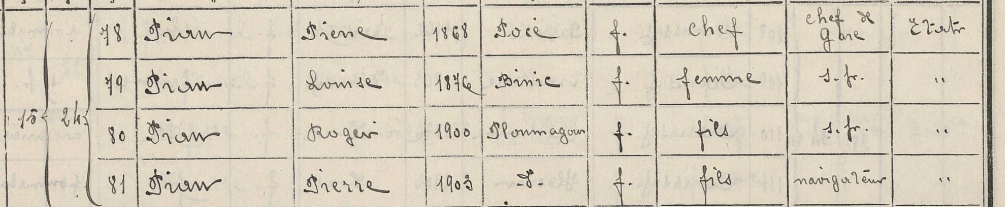 78 Pian Pierre 1868 Pocé f. chef chef de gare Etat
79 Pian Louise 1876 Binic f. femme s. fr. "
15 24 80 Pian Roger 1900 Ploumagoar f. fils s. fr. "
81 Pian Pierre 1903 d. f. fils navigateur "